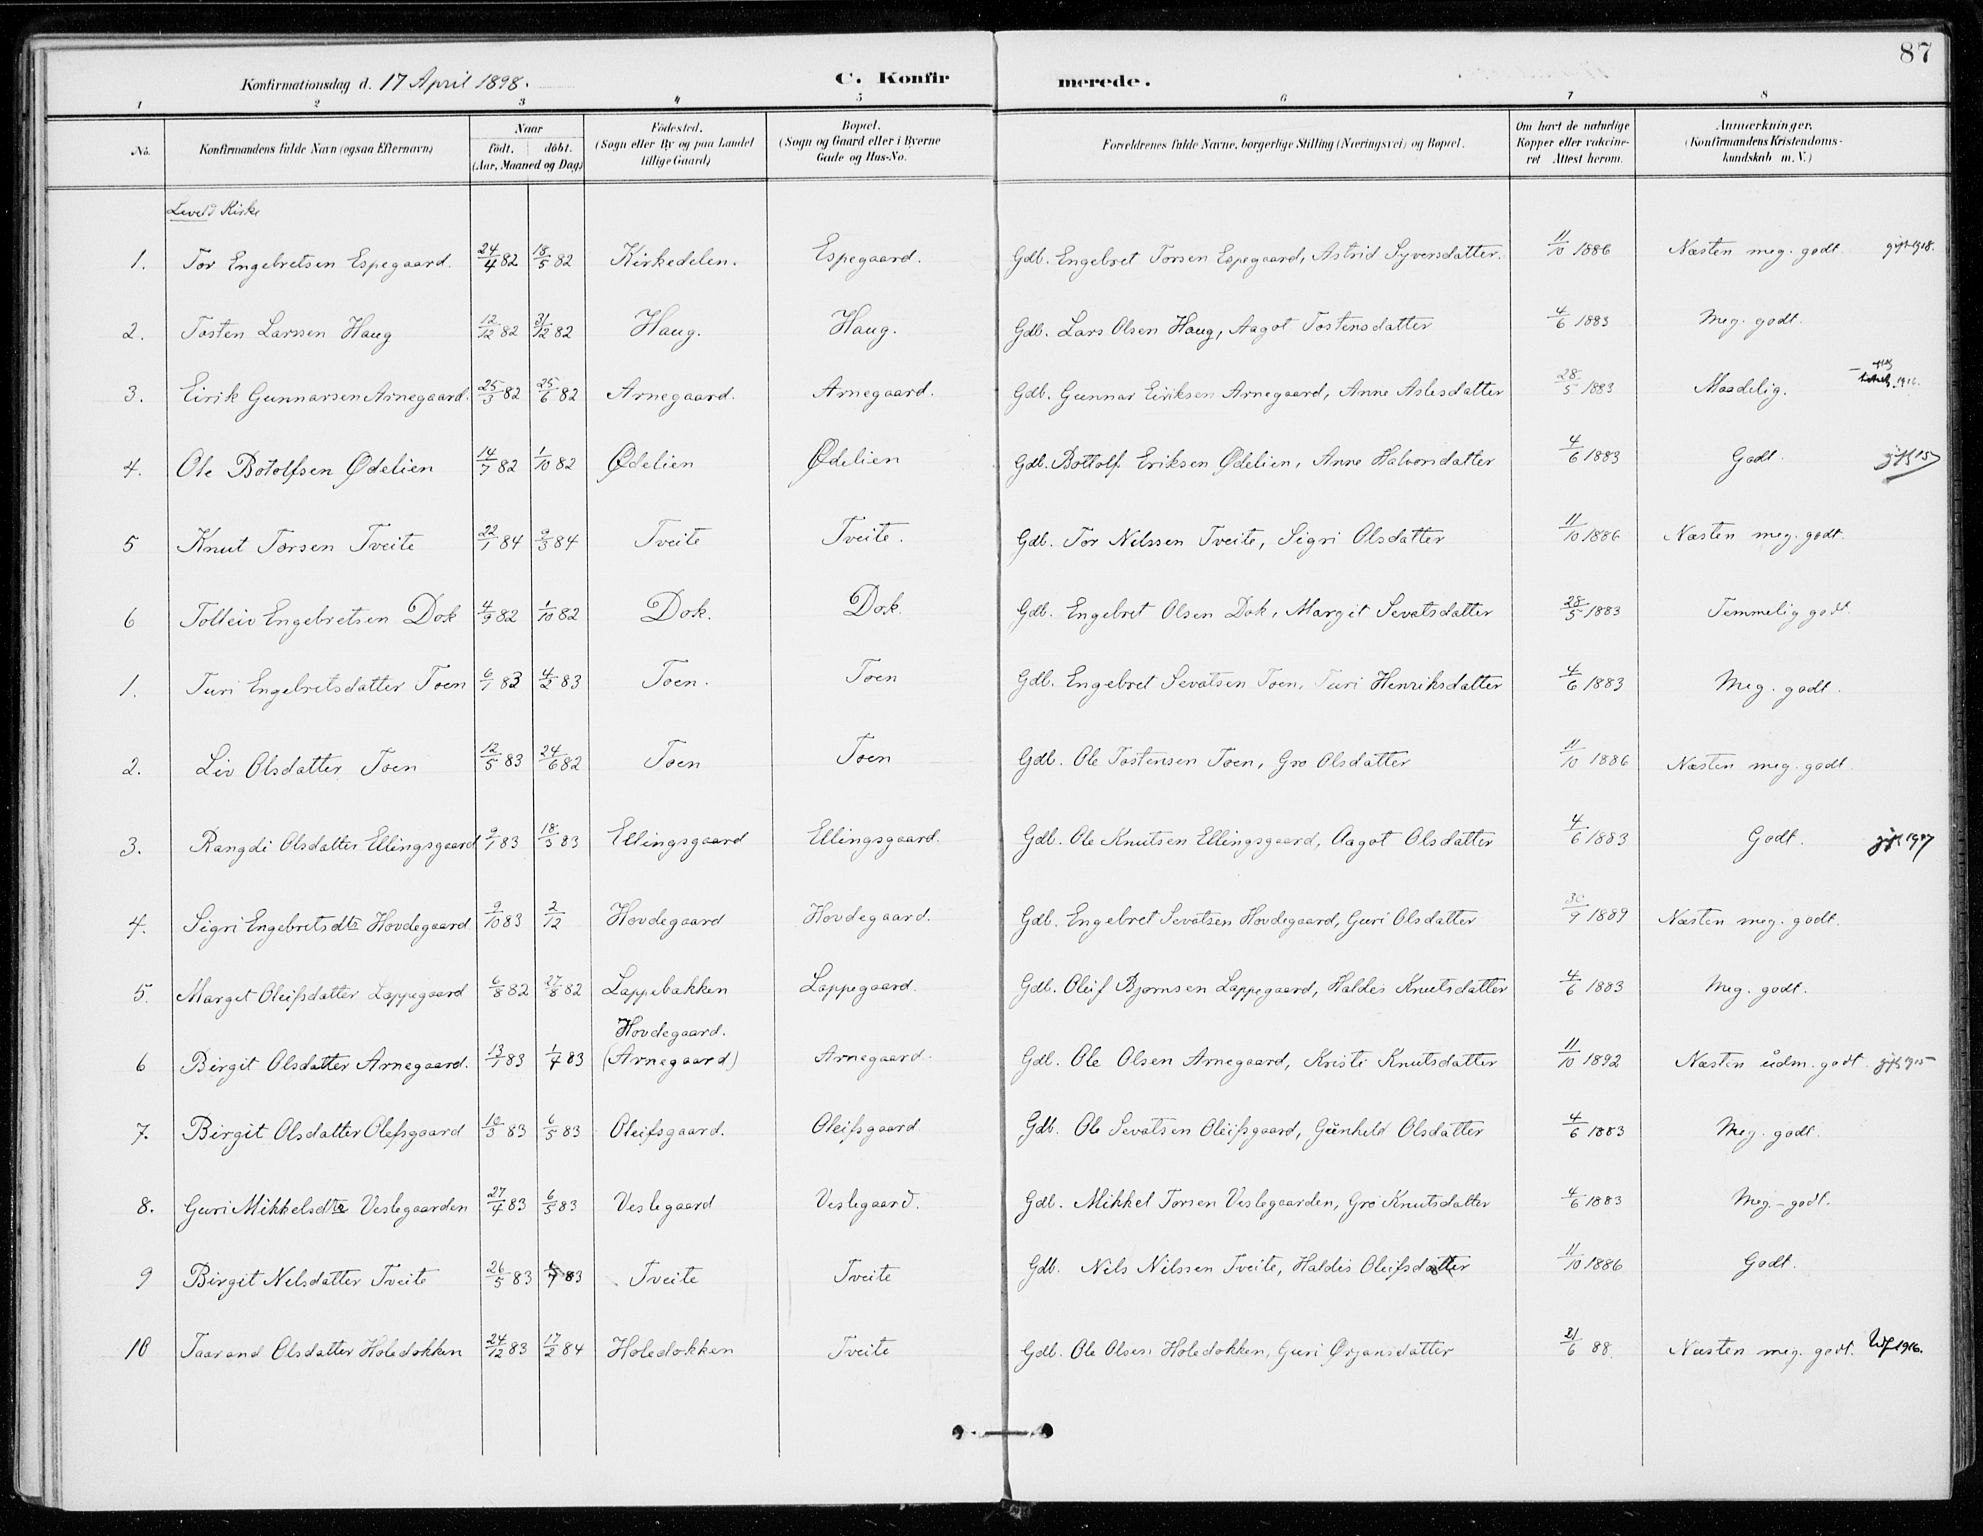 87
Konfirmationsdag d. 17 April 1898.
C. Konfirmerede.
1 2 3 4 5 6 7 8
No. | Konfirmandens fulde Navn (ogsaa Efternavn) | Naar født. døbt. (Aar, Maaned og Dag) | Fødested. (Sogn eller By og paa Landet tillige Gaard) | Bopæl. (Sogn og Gaard eller i Byerne Gade og Hus-No. | Forældrenes fulde Navne, borgerlige Stilling (Næringsvei) og Bopæl. | Om havt de naturlige Kopper eller vakcineret Attest herom. | Anmærkninger. (Konfirmandens Kristendomskundskab m. V.)
Leveld Kirke
1. Tor Engebretsen Espegaard. 24/4 82 18/5 82 Kirkedelen. Espegaard. Gdb. Engebret Torsen Espegaard, Astrid Syversdatter. 11/10 1886 Næsten meg. godt. gift 1918.
2. Tosten Larssen Haug 12/12 82 31/12 82 Haug. Haug. Gdb. Lars Olsen Haug, Aagot Tostensdatter 4/6 1883 Meg. godt.
3. Eirik Gunnarsen Arnegaard. 25/3 82 25/6 82 Arnegaard. Arnegaard. Gdb. Gunnar Eiriksen Arnegaard, Anne Aslesdatter 28/5 1883 Maadelig. 1916.
4. Ole Botolfsen Ødelien 14/7 82 1/10 82 Ødelien Ødelien Gdb. Bottolf Eriksen Ødelien, Anne Halvorsdatter 4/6 1883 Godt. gift 15
5 Knut Torsen Tveite 22/1 84 9/3 84 Tveite Tveite. Gdb. Tor Nilssen Tveite, Sigri Olsdatter 11/10 1886 Næsten meg. godt.
6 Tolleiv Engebretsen Dok 4/9 82 1/10 82 Dok. Dok. Gdb. Engebret Olsen Dok, Margit Sevatsdatter 28/5 1883 Temmelig godt.
1. Turi Engebretsdatter Toen 6/1 83 4/2 83 Toen. Toen Gdb. Engebret Sevatsen Toen, Turi Henriksdatter 4/6 1883 Meg. godt.
2. Liv Olsdatter Toen 12/5 83 24/6 82 Toen Toen Gdb. Ole Tostensen Toen, Gro Olsdatter 11/10 1886 Næsten meg. godt.
3. Rangdi Olsdatter Ellingsgaard 9/1 83 18/3 83 Ellingsgaard Ellingsgaard. Gdb. Ole Knutsen Ellingsgaard, Aagot Olsdatter 4/6 1883 Godt. gift 1907
4. Sigri Engebretsdtr Hovdegaard 9/10 83 2/12 Hovdegaard Hovdegaard. Gdb. Engebret Sevatsen Hovdegaard, Guri Olsdatter 30/9 1889 Næsten meg. godt.
5. Marget Oleifsdatter Lappegaard 6/8 82 27/8 82 Lappebakken Lappegaard. Gdb. Oleif Bjørnsen Lappegaard, Haldis Knutsdatter 4/6 1883 Meg. godt.
Hovdegaard.
6 Birgit Olsdatter Arnegaard. 13/1 83 1/4 83 (Arnegaard) Arnegaard. Gdb. Ole Olsen Arnegaard, Kristi Knutsdatter 11/10 1892 Næsten udm. godt. gift 1915
7. Birgit Olsdatter Olefsgaard 10/3 83 6/5 83 Oleifsgaard. Oleifsgaard Gdb. Ole Sevatsen Oleifsgaard, Gunhild Olsdatter 4/6 1883 Meg. godt.
8. Guri Mikkelsdtr Veslegaarden 27/4 83 6/5 83 Veslegaard Veslegaard. Gdb. Mikkel Torsen Veslegaarden, Gro Knutsdatter 4/6 1883 Meg. godt.
9 Birgit Nilsdatter Tveite 26/5 83 83 Tveite Tveite Gdb. Nils Nilssen Tveite, Haldis Oleifsdatter 11/10 1886 Godt.
10 Taarand Olsdatter Holedokken 24/12 83 17/2 84 Holedokken Tveite Gdb. Ole Olsen Holedokken, Guri Ørjansdatter 21/6 88. Næsten meg. godt. 1916.